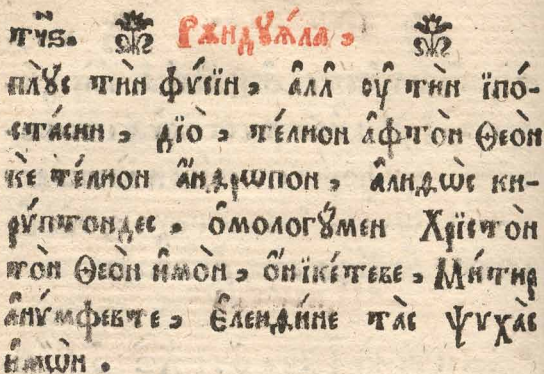 тч҃ѕ. Рѫндꙋѧ́ла,
плꙋ̀с тѝн фѵ́сїн, а҆лл̾ ѹ҆ тѝн їпо́-
ста́син, дїо̀, те́лион а҆фто̀н Ѳео̀н
кѐ те́лион а҆́ндрѡпон, а҆лидѡ̀с ки-
рѵ́птондес, ѻ҆мологꙋ́мен Хрїсто̀н
то̀н Ѳео̀н и҆мо̀н, ѻ҆́нїке́теве, Ми́тир
а҆нѵ́мфевте, Е҆ленди́не та̀с Ѱѵха̀с
и҆мѡ̀н.